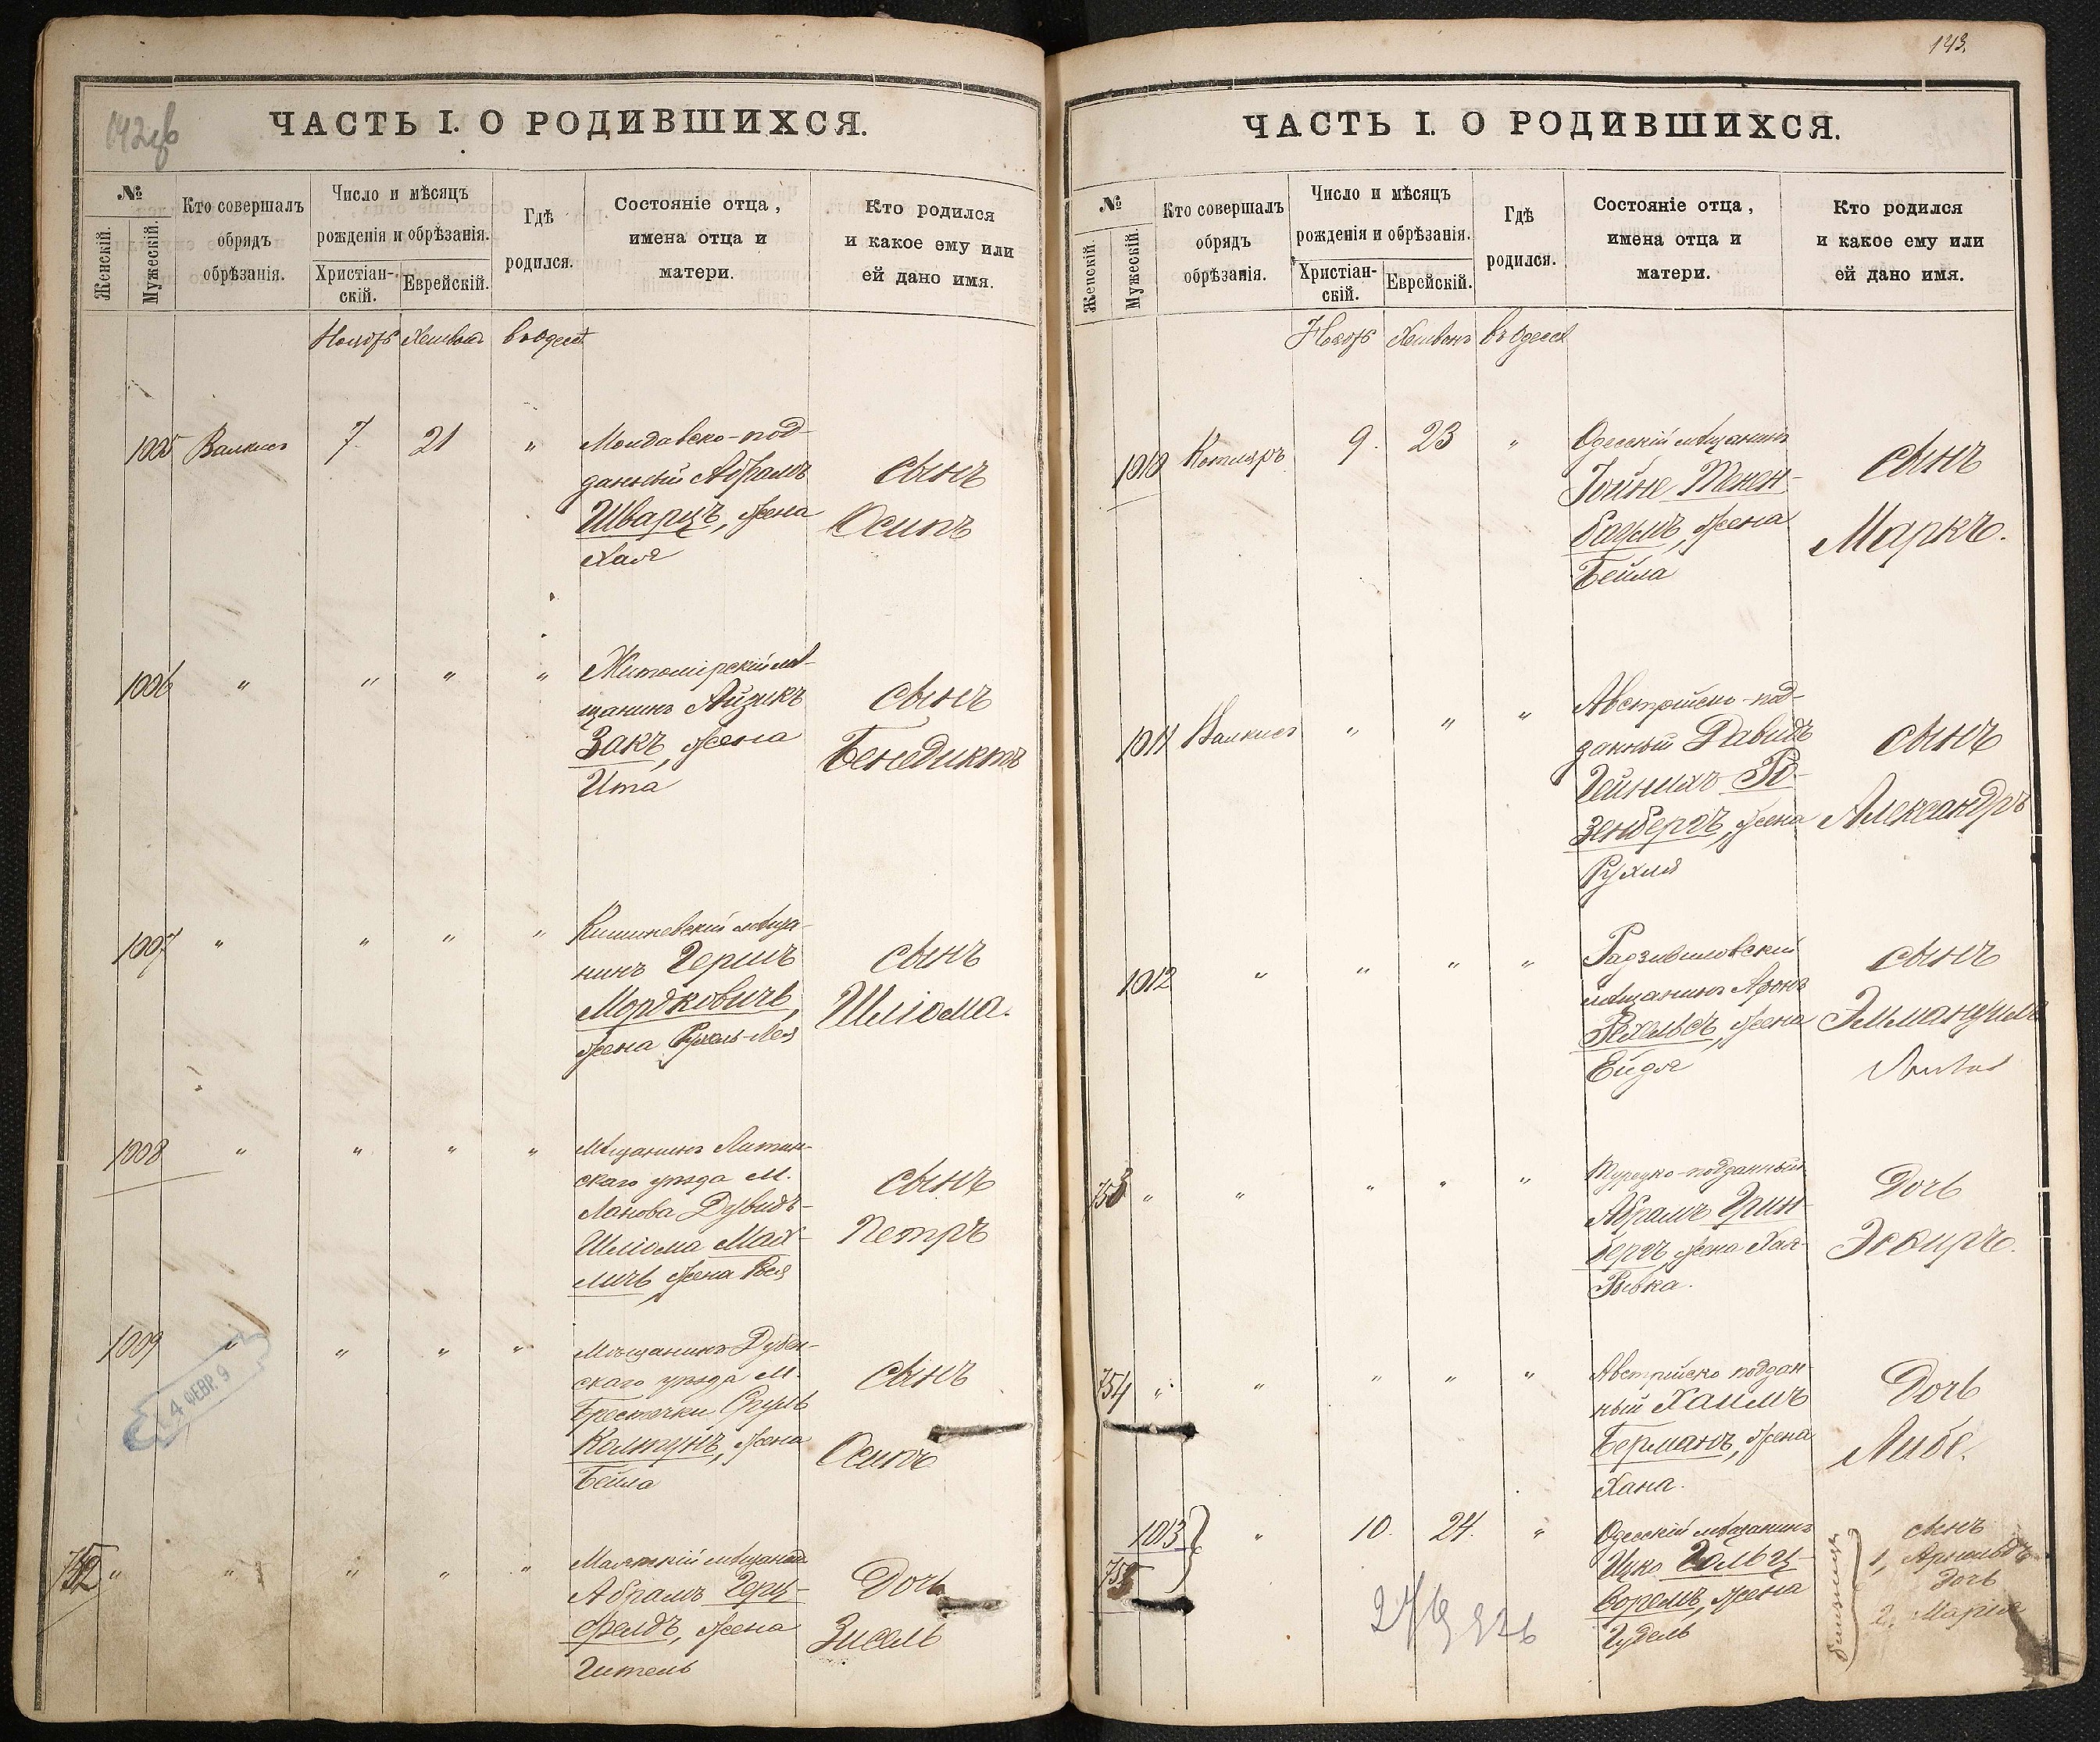 ЧАСТЬ I. О РОДИВШИХСЯ.
№
Женскій.
Мужескій.
Кто совершалъ
обрядъ
обрѣзанія.
Число и мѣсяцъ
рожденія и обрѣзанія.
Христіан-
скій.
Еврейскій.
Гдѣ
родился.
Состояніе отца,
имена отца и
матери.
Кто родился
и какое ему или
ей дано имя.
Ноябрь Хешванъ въ Одессѣ
1005 Валкисъ 7. 21 "
Молдавско-под-
данный Абрамъ
Шварцъ, жена
Хая
сынъ
Осипъ
1006 " " " "
Житомірскій мѣ-
щанинъ Айзикъ
Закъ, жена
Ита
сынъ
Бенедиктъ
1007 " " " "
Кишиневскій мѣща-
нинъ Гершъ
Мордковичъ,
жена Рухль-Лея
сынъ
Шліома.
1008 " " " "
Мѣщанинъ Литин-
скаго уѣзда м.
Дувидъ-
Шліома
жена
сынъ
Петръ
1009 " " " "
Мѣщанинъ Дубен-
скаго уѣзда м.
Берестечки Сруль
Колтунъ, жена
Бейла
сынъ
Осипъ
4 ФЕВР. 9
752 " " " " "
мѣщанинъ
Абрамъ Герц-
фельдъ, жена
Гитель
Дочь
Зисель
143.
ЧАСТЬ I. О РОДИВШИХСЯ.
№
Женскій.
Мужескій.
Кто совершалъ
обрядъ
обрѣзанія.
Число и мѣсяцъ
рожденія и обрѣзанія.
Христіан-
скій.
Еврейскій.
Гдѣ
родился.
Состояніе отца,
имена отца и
матери.
Кто родился
и какое ему или
ей дано имя.
Ноябрь Хешванъ въ Одессѣ
1010 Котляръ 9. 23 "
Одесскій мѣщанинъ
Іойне Тенен-
баумъ, жена
Бейла
сынъ
Маркъ.
1011 Валкисъ " " "
Австрійско-под-
данный Давидъ
Гейнихъ Ро-
зенбергъ, жена
Рухля
сынъ
Александръ
1012 " " " "
Радзивиловскій
мѣщанинъ Аронъ
жена
Ейдя
сынъ
Эммануилъ
753 " " " " "
Турецко-подданный
Абрамъ Грин-
бергъ, жена Хая-
Ривка.
Дочь
Эсѳирь.
754 " " " " "
Австрійско поддан-
ный Хаимъ
Берманъ, жена
Хана.
Дочь
Либе.
1013 " 10. 24. "
755
Одесскій мѣщанинъ
Ицко Гольц-
воремъ, жена
Гудель
близнецы
сынъ
1, Арнольдъ
Дочь
2, Марія